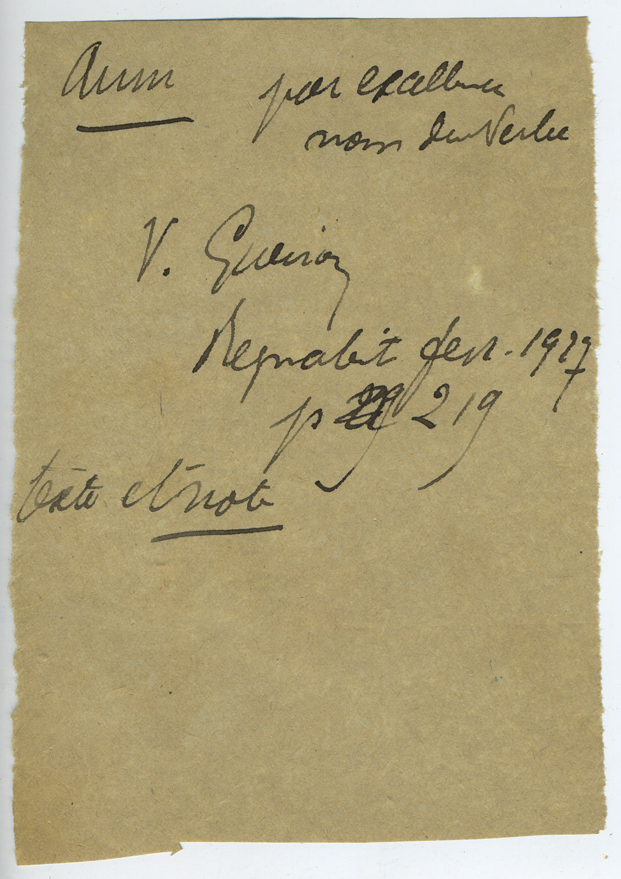 Aum par excellence
nom du Verbe
V. Guénon
Regnabit fevr. 1927
p 219
texte et note